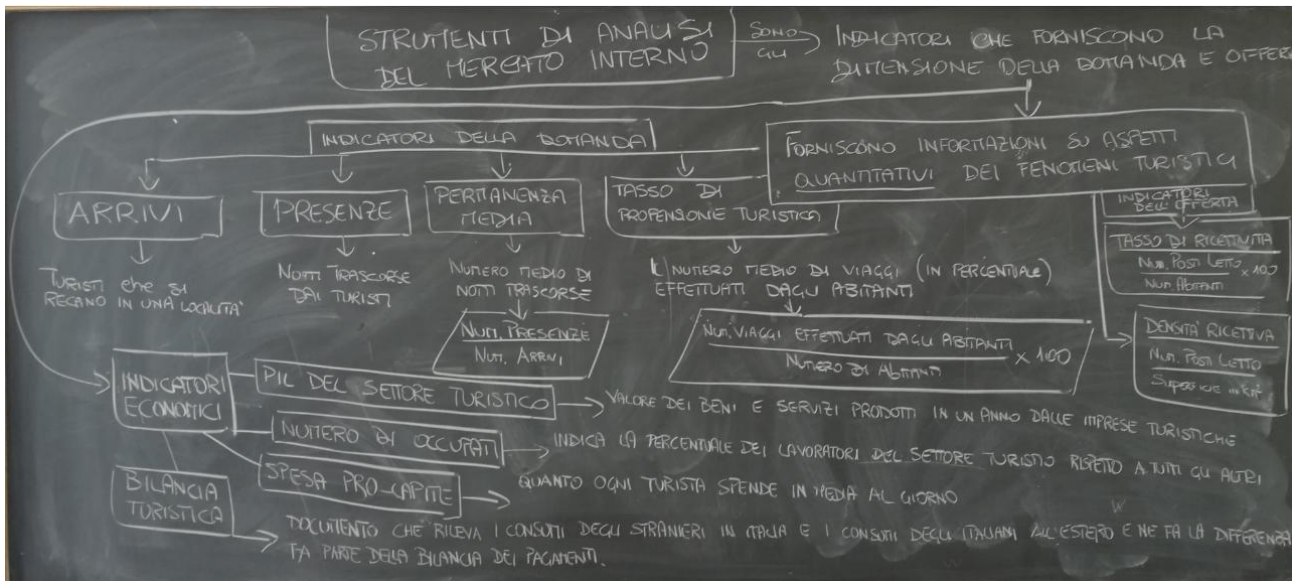 STRUMENTI DI ANALISI
DEL MERCATO INTERNO
SONO
GLI
INDICATORI CHE FORNISCONO LA
DIMENSIONE DELLA DOMANDA E OFFER
INDICATORI DELLA DOMANDA
FORNISCONO INFORMAZIONI SU ASPETTI
QUANTITATIVI DEI FENOMENI TURISTICI
ARRIVI
TURISTI che SI
RECANO IN UNA LOCALITA'
PRESENZE
NOTTI TRASCORSE
DAI TURISTI
PERMANENZA
MEDIA
NUMERO MEDIO DI
NOTTI TRASCORSE
NUM. PRESENZE
NUM. ARRIVI
TASSO DI
PROPENSIONE TURISTICA
IL NUMERO MEDIO DI VIAGGI (IN PERCENTUALE)
EFFETTUATI DAGLI ABITANTI
NUM. VIAGGI EFFETTUATI DAGLI ABITANTI
NUMERO DI ABITANTI
× 100
INDICATORI
DELL'OFFERTA
TASSO DI RICETTIVITA
NUM. POSTI LETTO
NUM. ABITANTI
× 100
DENSITA' RICETTIVA
NUM. POSTI LETTO
SUPERFICIE IN
INDICATORI
ECONOMICI
PIL DEL SETTORE TURISTICO
VALORE DEI BENI E SERVIZI PRODOTTI IN UN ANNO DALLE IMPRESE TURISTICHE
NUMERO DI OCCUPATI
INDICA LA PERCENTUALE DEI LAVORATORI DEL SETTORE TURISTIO RISPETTO A TUTTI GLI ALTRI
SPESA PRO-CAPITE
QUANTO OGNI TURISTA SPENDE IN MEDIA AL GIORNO
BILANCIA
TURISTICA
DOCUMENTO CHE RILEVA I CONSUMI DEGLI STRANIERI IN ITALIA E I CONSUMI DEGLI ITALIANI ALL'ESTERO E NE FA LA DIFFERENZA
FA PARTE DELLA BILANCIA DEI PAGAMENTI.